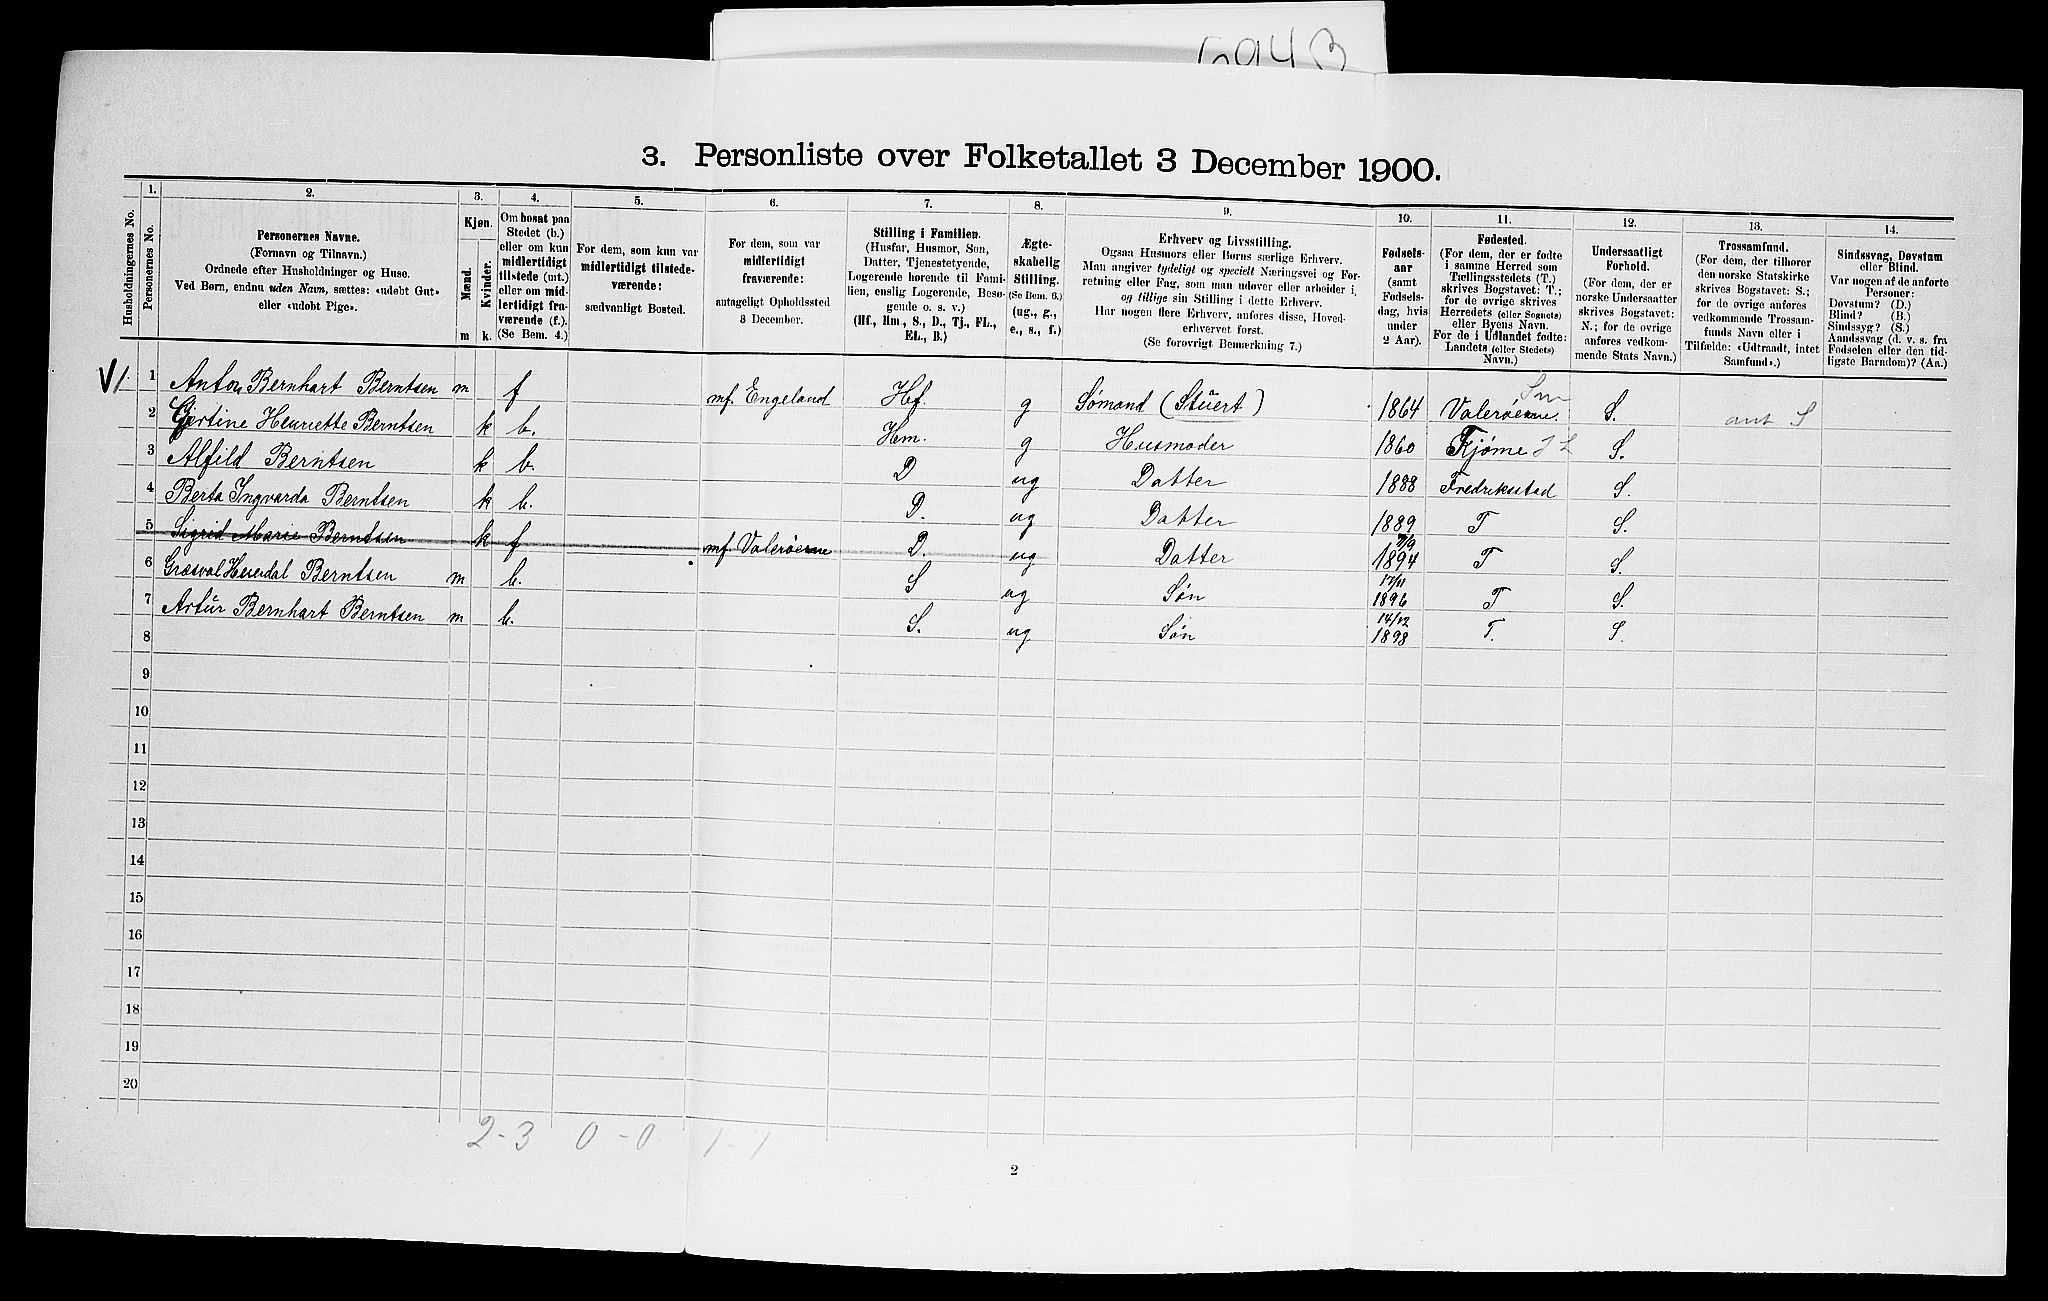 6943
3. Personliste over Folketallet 3 December 1900.
Husholdningernes No.
1.
Personernes No.
2.
Personernes Navne.
(Fornavn og Tilnavn.)
Ordnede efter Husholdninger og Huse.
Ved Børn, endnu uden Navn, sættes: «udøbt Gut»
eller «udøbt Pige».
3.
Kjøn.
Mænd.
Kvinder.
m
k.
4.
Om bosat paa
Stedet (b.)
eller om kun
midlertidigt
tilstede (mt.)
eller om mid-
lertidigt fra-
værende (f.).
(Se Bem. 4.)
5.
For dem, som kun var
midlertidigt tilstede-
værende:
sædvanligt Bosted.
6.
For dem, som var
midlertidigt
fraværende:
antageligt Opholdssted
3 December.
7.
Stilling i Familien.
(Husfar, Husmor, Søn,
Datter, Tjenestetyende,
Logerende hørende til Fami-
lien, enslig Logerende, Besø-
gende o. s. v.)
(Hf., Hm., S., D., Tj., FL.,
EL., B.)
8.
Ægte-
skabelig
Stilling.
(Se Bem. 6.)
(ug., g.,
e., s., f.)
9.
Erhverv og Livsstilling.
Ogsaa Husmors eller Børns særlige Erhverv.
Man angiver tydeligt og specielt Næringsvei og For-
retning eller Fag, som man udøver eller arbeider i,
og tillige sin Stilling i dette Erhverv.
Har nogen flere Erhverv, anføres disse, Hoved-
erhvervet først.
(Se forøvrigt Bemærkning 7.)
10.
Fødsels-
aar
(samt
Fødsels-
dag, hvis
under
2 Aar).
11.
Fødested.
(For dem, der er fødte
i samme Herred som
Tællingsstedets (T.)
skrives Bogstavet: T.;
for de øvrige skrives
Herredets (eller Sognets)
eller Byens Navn.
For de i Udlandet fødte:
Landets (eller Stedets)
Navn.)
12.
Undersaatligt
Forhold.
(For dem, der er
norske Undersaatter
skrives Bogstavet:
N.; for de øvrige
anføres vedkom-
mende Stats Navn.)
13.
Trossamfund.
(For dem, der tilhører
den norske Statskirke
skrives Bogstavet: S.;
for de øvrige anføres
vedkommende Trossam-
funds Navn eller i
Tilfælde: «Udtraadt, intet
Samfund».)
14.
Sindssvag, Døvstum
eller Blind.
Var nogen af de anførte
Personer:
Døvstum? (D.)
Blind? (B.)
Sindssyg? (S.)
Aandssvag (d. v. s. fra
Fødselen eller den tid-
ligste Barndom)? (Aa.)
1 Anton Bernhart Berntsen m f mf. Engeland Hf. g Sømand (Stuert) 1864 Valerøerne S. ant S
2 Gjertine Henriette Berntsen k b. Hm. g Husmoder 1860 Tjøme J L S.
3 Alfild Berntsen k b. D ug Datter 1888 Fredriksstad S.
4 Berta Ingvarda Berntsen k b. D. ug Datter 1889 T S.
5 Sigrid Marie Berntsen k f mf. Valerøerne D. ug Datter 7/9 1894 T S.
6 Græsval Heredal Berntsen m b. S ug Søn 17/11 1896 T S.
7 Artur Bernhart Berntsen m b. S. ug Søn 14/12 1898 T. S.
8
9
10
11
12
13
14
15
16
17
18
19
20
2-3 0-0 1-1
2